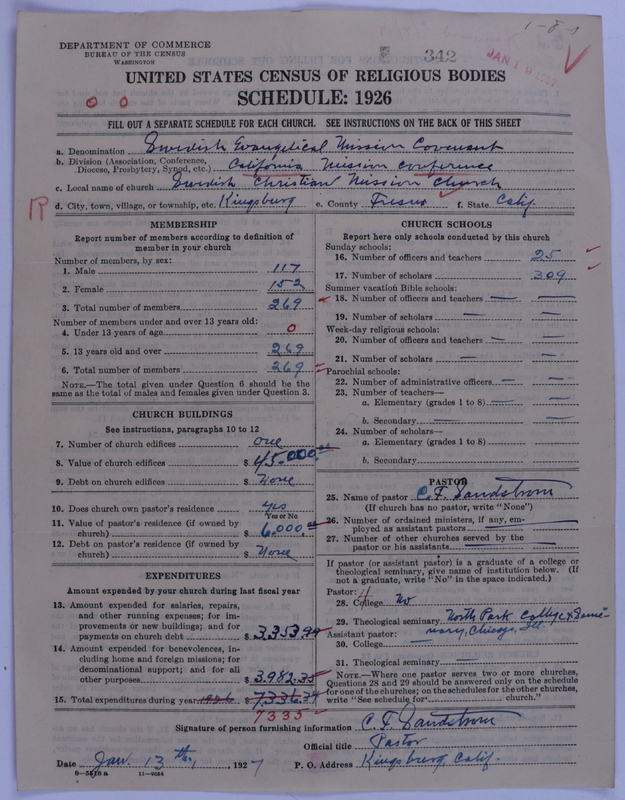 1-8-1
DEPARTMENT OF COMMERCE
BUREAU OF THE CENSUS
WASHINGTON
342
JAN 19 1927
UNITED STATES CENSUS OF RELIGIOUS BODIES
SCHEDULE: 1926
FILL OUT A SEPARATE SCHEDULE FOR EACH CHURCH. SEE INSTRUCTIONS ON THE BACK OF THIS SHEET
a. Denomination Swedish Evangelical Mission Covenant
b. Division (Association, Conference, Diocese, Presbytery, Synod, etc.) California Mission Conference
c. Local name of church Swedish Christian Mission Church
d. City, town, village, or township, etc. Kingsburg e. County Fresno f. State Calif.
MEMBERSHIP
Report number of members according to definition of
member in your church
Number of members, by sex:
1. Male 117
2. Female 152
3. Total number of members 269
Number of members under and over 13 years old:
4. Under 13 years of age 0
5. 13 years old and over 269
6. Total number of members 269
NOTE.—The total given under Question 6 should be the
same as the total of males and females given under Question 3.
CHURCH BUILDINGS
See instructions, paragraphs 10 to 12
7. Number of church edifices one
8. Value of church edifices $ 45.000.00
9. Debt on church edifices $ None
10. Does church own pastor's residence? yes
Yes or No
11. Value of pastor's residence (if owned by
church) $ 6,000.00
12. Debt on pastor's residence (if owned by
church) $ None
EXPENDITURES
Amount expended by your church during last fiscal year
13. Amount expended for salaries, repairs,
and other running expenses; for im-
provements or new buildings; and for
payments on church debt $ 3353.99
14. Amount expended for benevolences, in-
cluding home and foreign missions; for
denominational support; and for all
other purposes $ 3982.35
15. Total expenditures during year 1926 $ 7336.34
7335
CHURCH SCHOOLS
Report here only schools conducted by this church
Sunday schools:
16. Number of officers and teachers 25
17. Number of scholars 309
Summer vacation Bible schools:
18. Number of officers and teachers — —
19. Number of scholars — —
Week-day religious schools:
20. Number of officers and teachers — —
21. Number of scholars — —
Parochial schools:
22. Number of administrative officers — —
23. Number of teachers—
a. Elementary (grades 1 to 8) — —
b. Secondary — —
24. Number of scholars—
a. Elementary (grades 1 to 8) —
b. Secondary —
PASTOR
25. Name of pastor C. F. Sandstrom
(If church has no pastor, write "None")
26. Number of ordained ministers, if any, em-
ployed as assistant pastors —
27. Number of other churches served by the
pastor or his assistants —
If pastor (or assistant pastor) is a graduate of a college or
theological seminary, give name of institution below. (If
not a graduate, write "No" in the space indicated.)
Pastor:
28. College No
29. Theological seminary North Park College & Semi-
Assistant pastor: nary, Chicago, Ill.
30. College —
31. Theological seminary —
NOTE.—Where one pastor serves two or more churches,
Questions 28 and 29 should be answered only on the schedule
for one of the churches; on the schedules for the other churches,
write "See schedule for church."
Signature of person furnishing information C. F. Sandstrom
Official title Pastor
Date Jan. 13th, 1927 P. O. Address Kingsburg Calif.
8—5518 a 11—9684